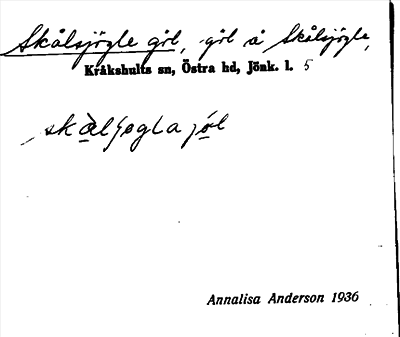 Skålsjögle göl, göl å Skålsjögle,
Kråkshults sn, Östra hd, Jönk. l. 5
skàlʃøgla jöl
Annalisa Anderson 1936